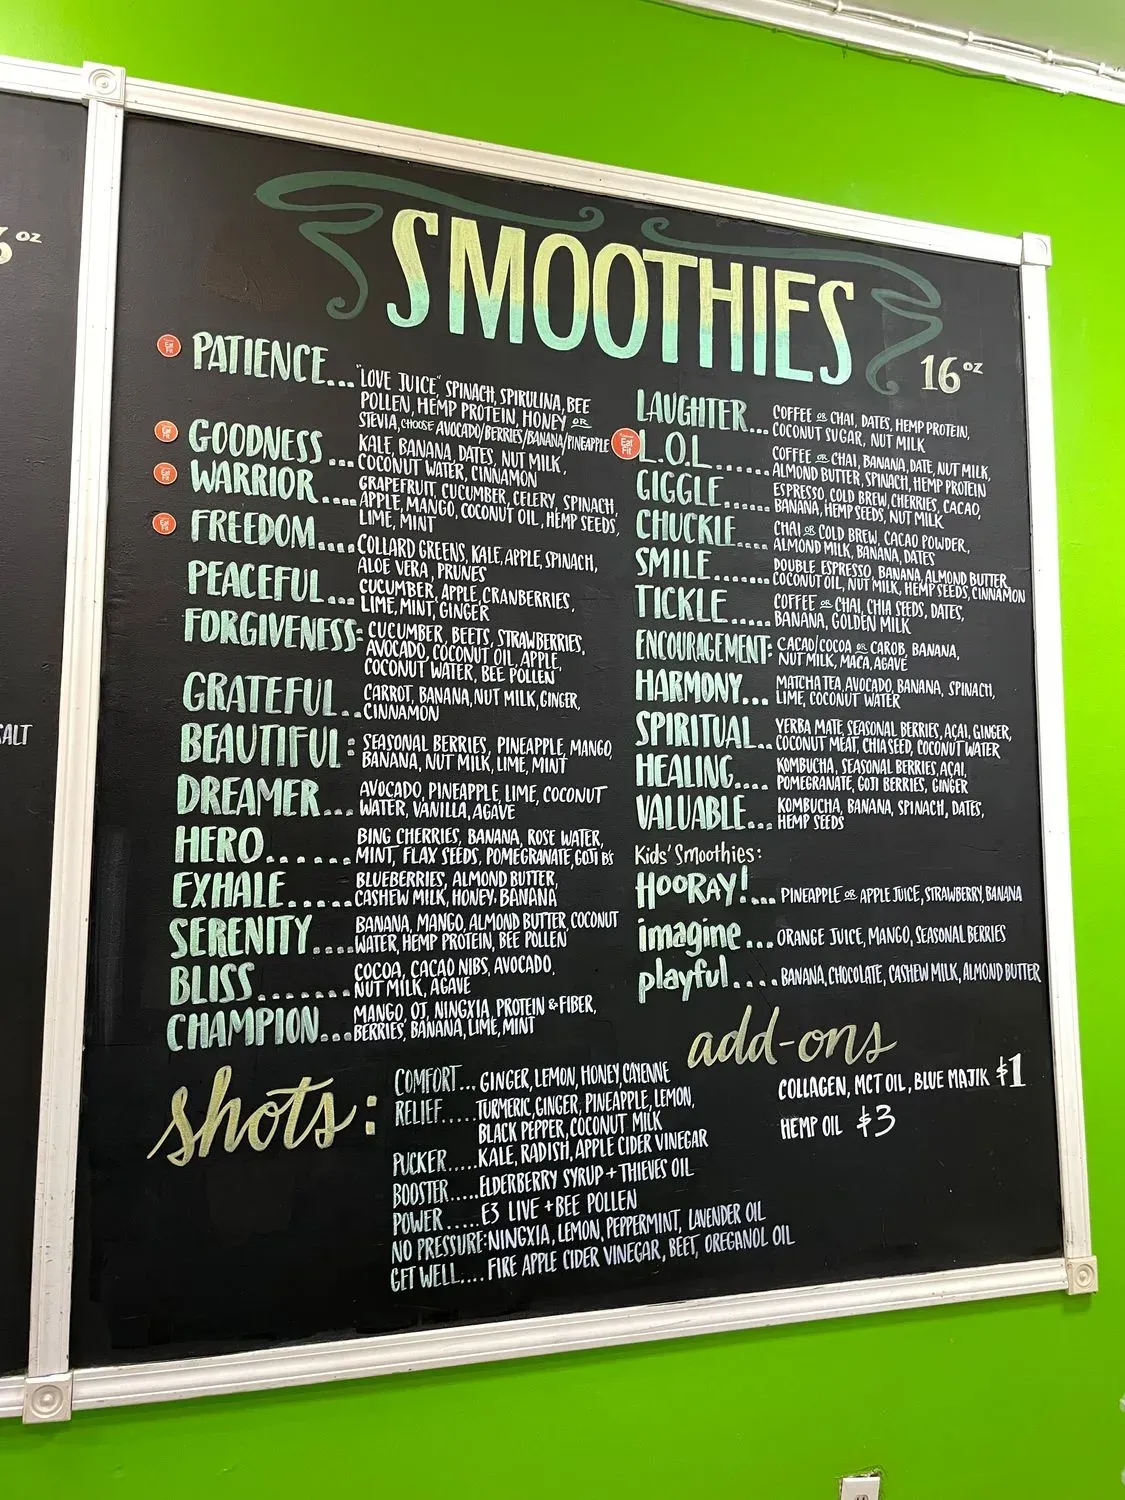 6 oz
SALT
SMOOTHIES
16 oz
Eat Fit
PATIENCE... "LOVE JUICE" SPINACH, SPIRULINA, BEE
POLLEN, HEMP PROTEIN, HONEY OR
STEVIA, CHOOSE AVOCADO/BERRIES/BANANA/PINEAPPLE
Eat Fit
GOODNESS... KALE, BANANA, DATES, NUT MILK,
COCONUT WATER, CINNAMON
Eat Fit
WARRIOR.... GRAPEFRUIT, CUCUMBER, CELERY, SPINACH,
APPLE, MANGO, COCONUT OIL, HEMP SEEDS,
LIME, MINT
Eat Fit
FREEDOM.... COLLARD GREENS, KALE, APPLE, SPINACH,
ALOE VERA, PRUNES
PEACEFUL... CUCUMBER, APPLE, CRANBERRIES,
LIME, MINT, GINGER
FORGIVENESS: CUCUMBER, BEETS, STRAWBERRIES,
AVOCADO, COCONUT OIL, APPLE,
COCONUT WATER, BEE POLLEN
GRATEFUL... CARROT, BANANA, NUT MILK, GINGER,
CINNAMON
BEAUTIFUL: SEASONAL BERRIES, PINEAPPLE, MANGO,
BANANA, NUT MILK, LIME, MINT
DREAMER... AVOCADO, PINEAPPLE, LIME, COCONUT
WATER, VANILLA, AGAVE
HERO...... BING CHERRIES, BANANA, ROSE WATER,
MINT, FLAX SEEDS, POMEGRANATE, GOJI B's
EXHALE..... BLUEBERRIES, ALMOND BUTTER,
CASHEW MILK, HONEY, BANANA
SERENITY.... BANANA, MANGO, ALMOND BUTTER, COCONUT
WATER, HEMP PROTEIN, BEE POLLEN
BLISS....... COCOA, CACAO NIBS, AVOCADO,
NUT MILK, AGAVE
CHAMPION... MANGO, OJ, NINGXIA, PROTEIN & FIBER,
BERRIES, BANANA, LIME, MINT
LAUGHTER... COFFEE OR CHAI, DATES, HEMP PROTEIN,
COCONUT SUGAR, NUT MILK
Eat Fit
L.O.L...... COFFEE OR CHAI, BANANA, DATE, NUT MILK,
ALMOND BUTTER, SPINACH, HEMP PROTEIN
GIGGLE..... ESPRESSO, COLD BREW, CHERRIES, CACAO,
BANANA, HEMP SEEDS, NUT MILK
CHUCKLE.... CHAI OR COLD BREW, CACAO POWDER,
ALMOND MILK, BANANA, DATES
SMILE....... DOUBLE ESPRESSO, BANANA, ALMOND BUTTER,
COCONUT OIL, NUT MILK, HEMP SEEDS, CINNAMON
TICKLE..... COFFEE OR CHAI, CHIA SEEDS, DATES,
BANANA, GOLDEN MILK
ENCOURAGEMENT: CACAO/COCOA OR CAROB, BANANA,
NUT MILK, MACA, AGAVE
HARMONY... MATCHA TEA, AVOCADO, BANANA, SPINACH,
LIME, COCONUT WATER
SPIRITUAL... YERBA MATE, SEASONAL BERRIES, ACAI, GINGER,
COCONUT MEAT, CHIA SEED, COCONUT WATER
HEALING.... KOMBUCHA, SEASONAL BERRIES, ACAI,
POMEGRANATE, GOJI BERRIES, GINGER
VALUABLE... KOMBUCHA, BANANA, SPINACH, DATES,
HEMP SEEDS
Kids' Smoothies:
HOORAY!... PINEAPPLE OR APPLE JUICE, STRAWBERRY, BANANA
imagine... ORANGE JUICE, MANGO, SEASONAL BERRIES
playful.... BANANA, CHOCOLATE, CASHEW MILK, ALMOND BUTTER
add-ons
COLLAGEN, MCT OIL, BLUE MAJIK $1
HEMP OIL $3
shots:
COMFORT... GINGER, LEMON, HONEY, CAYENNE
RELIEF..... TURMERIC, GINGER, PINEAPPLE, LEMON,
BLACK PEPPER, COCONUT MILK
PUCKER..... KALE, RADISH, APPLE CIDER VINEGAR
BOOSTER..... ELDERBERRY SYRUP + THIEVES OIL
POWER..... E3 LIVE + BEE POLLEN
NO PRESSURE: NINGXIA, LEMON, PEPPERMINT, LAVENDER OIL
GET WELL.... FIRE APPLE CIDER VINEGAR, BEET, OREGANOL OIL